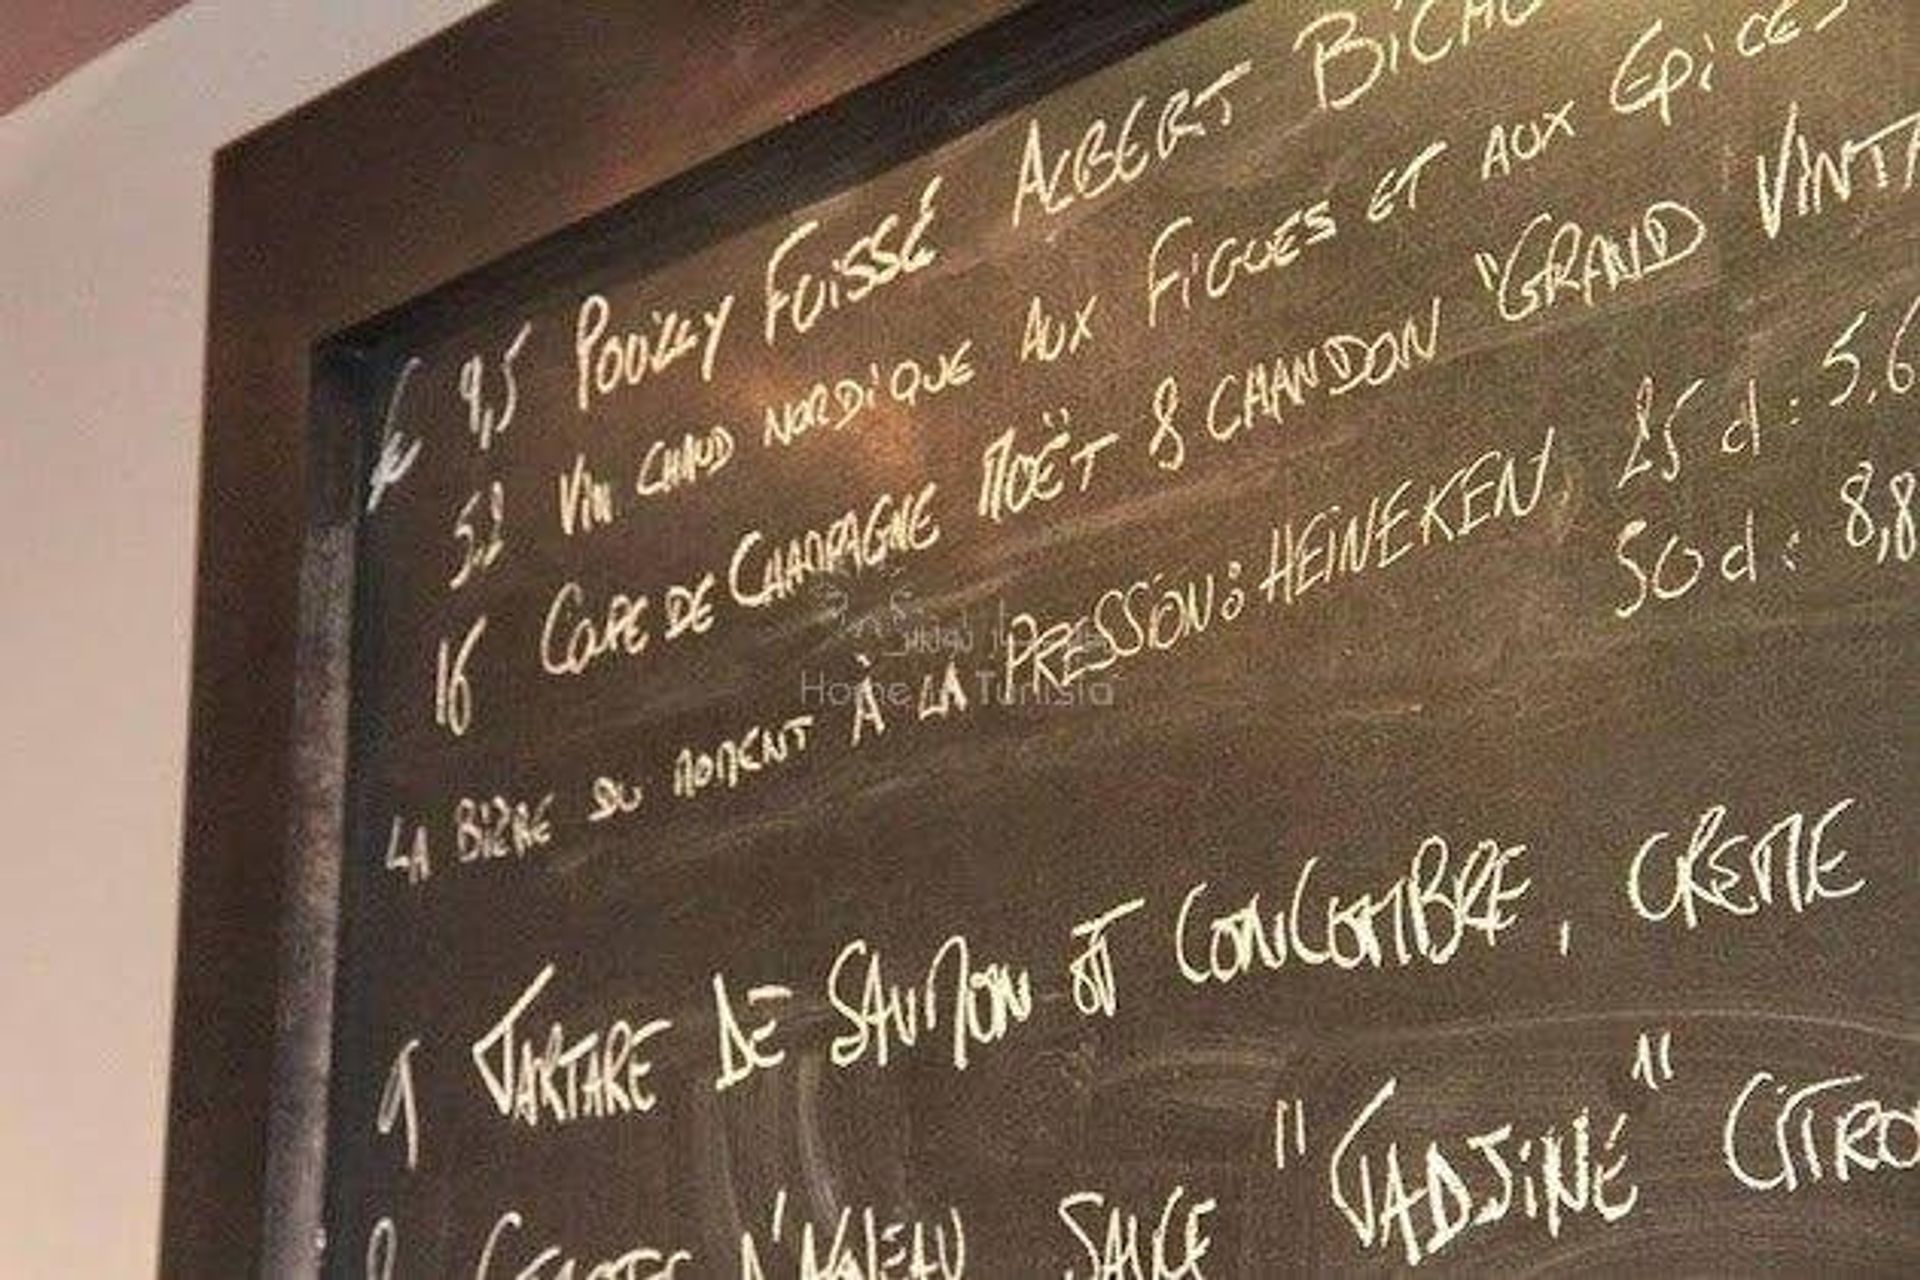 € 9,5 POUILLY FUISSÉ ALBERT BICHO
5,2 VIN CHAUD NORDIQUE AUX FIGUES ET AUX EPICES
16 COUPE DE CHAMPAGNE MOËT & CHANDON "GRAND VINTA
LA BIÈRE DU MOMENT À LA PRESSION: HEINEKEN, 25 cl: 5,6
50 cl: 8,8
Home in Tunisia
9 TARTARE DE SAUMON ET CONCOMBRE, CREME
D'AGNEAU SAUCE "TADJINE" CITRO